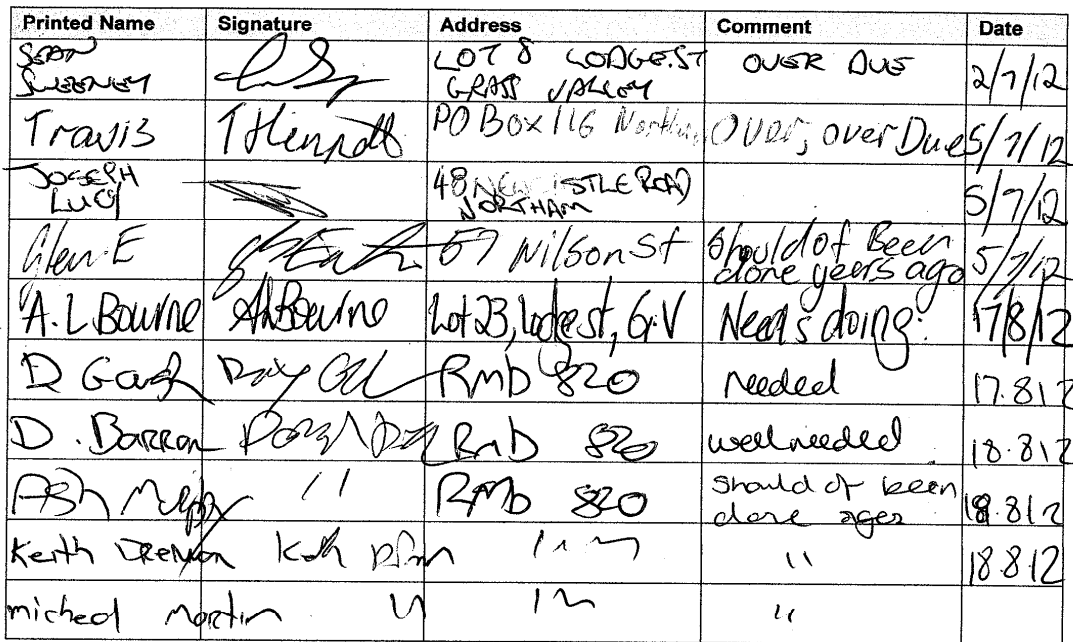 Printed Name Signature Address Comment Date
SEAN SWEENEY LOT 8 LODGE ST GRASS VALLEY OVER DUE 2/7/12
Travis THennott PO Box 116 Northam Over, over Due 5/7/12
JOSEPH LUCY 48 NEWCASTLE ROAD NORTHAM 5/7/12
Glen E 57 Wilson St should of Been done years ago 5/7/12
A.L Bourne ALBourne Lot 23, lodge st, G.V Needs doing. 17/8/12
D RMD 820 needed 17.8 12
D. Barron RMD 820 well needed 18.8 12
Ash RMD 820 should of been done ages 18.8 12
Keith " 18.8 12
micheal Martin "